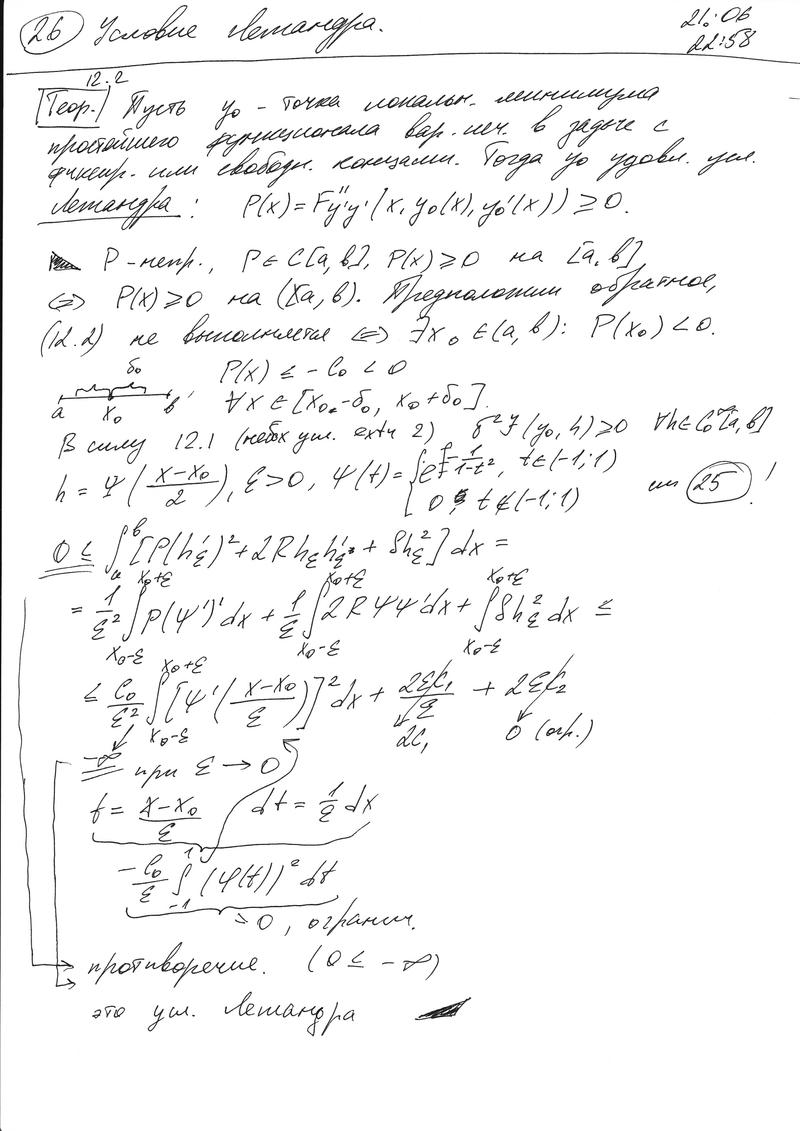 26 Условие Лежандра.
21.06
22:58
12.2
Теор. Пусть y₀ - точка локальн. минимума
простейшего функционала вар. исч. в задаче с
фиксир. или свободн. концами. Тогда y₀ удовл. усл.
Лежандра: P(x) = F''y'y' (x, y₀(x), y₀'(x)) ≥ 0.
P - непр., P ∈ C[a, b], P(x) ≥ 0 на [a, b]
⇔ P(x) ≥ 0 на (a, b). Предположим обратное,
(12.2) не выполняется ⇔ ∃x₀ ∈ (a, b): P(x₀) < 0.
δ₀ P(x) ≤ -C₀ < 0
a x₀ b ∀x ∈ [x₀-δ₀, x₀+δ₀].
В силу 12.1 (необх усл. extr 2) δ²J(y₀, h) ≥ 0 ∀h ∈ C₀^∞[a, b]
h = Ψ((x-x₀)/2), ε > 0, Ψ(t) = { e^(-1/(1-t²)), t ∈ (-1; 1)
0, t ∉ (-1; 1)
см 25 !
0 ≤ ∫_a^b [P(h'ε)² + 2R hε h'ε + S hε²] dx =
= 1/ε² ∫_{x₀-ε}^{x₀+ε} P(Ψ')' dx + 1/ε ∫_{x₀-ε}^{x₀+ε} 2RΨΨ' dx + ∫_{x₀-ε}^{x₀+ε} S hε² dx ≤
≤ C₀/ε² ∫_{x₀-ε}^{x₀+ε} [Ψ'((x-x₀)/ε)]² dx + 2εC₁/ε + 2εC₂
2C₁ 0 (огр.)
-∞ при ε → 0
t = (x-x₀)/ε dt = 1/ε dx
-C₀/ε ∫_{-1}^{1} (φ(t))² dt
> 0, огранич.
противоречие. (0 ≤ -∞)
это усл. Лежандра